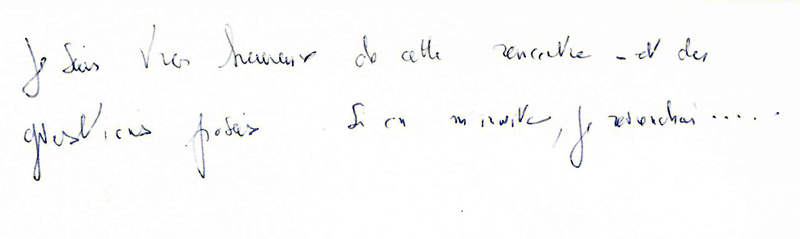 Je suis très heureux de cette rencontre - et des
questions posées. Si on m'invite, je reviendrai.....